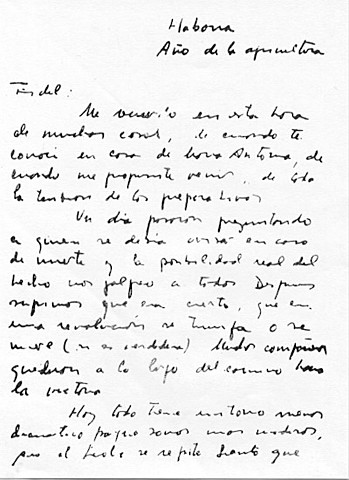 Habana
Año de la agricultura
Fidel:
Me recuerdo en esta hora
de muchas cosas, de cuando te
conocí en casa de María Antonia, de
cuando me propusiste venir, de toda
la tensión de los preparativos
Un día pasaron preguntando
a quien se debía avisar en caso
de muerte y la posibilidad real del
hecho nos golpeó a todos Después
supimos que era cierto, que en
una revolución se triunfa o se
muere (si es verdadera) Muchos compañeros
quedaron a lo largo del camino hacia
la victoria
Hoy todo tiene un tono menos
dramático porque somos mas maduros,
pero el hecho se repite Siento que